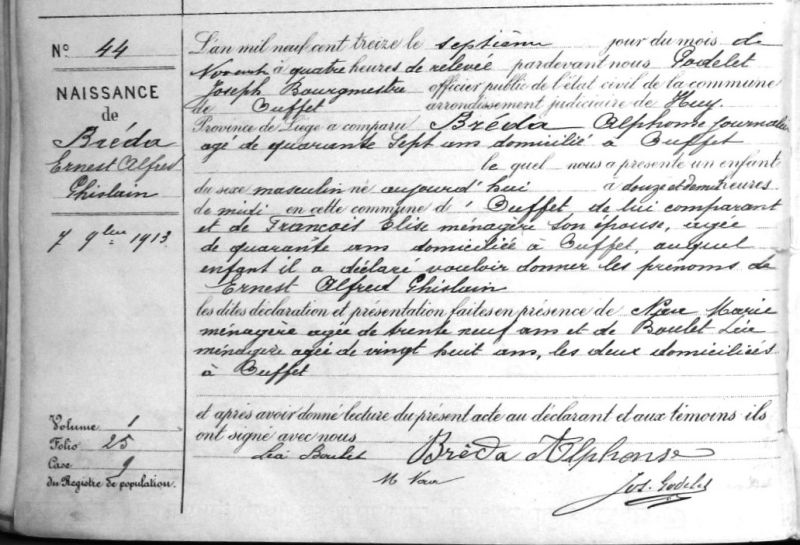 N° 44
NAISSANCE
de
Bréda
Ernest Alfred
Ghislain
7 9bre 1913
Volume 1
Folio 25
Case 9
du Registre de population.
L'an mil neuf cent treize le septième jour du mois de
Novemb à quatre heures de relevée pardevant nous Godelet
Joseph Bourgmestre officier public de l'état civil de la commune
de Ouffet arrondissement judiciaire de Huy
Province de Liège a comparu Bréda Alphonse journalier
agé de quarante sept ans domicilié à Ouffet
le quel nous a présenté un enfant
du sexe masculin né aujourd'hui à douze et demie heures
de midi en cette commune d'Ouffet de lui comparant
et de Francois Elise ménagère son épouse, agée
de quarante ans domiciliée à Ouffet, auquel
enfant il a déclaré vouloir donner les prénoms de
Ernest Alfred Ghislain
les dites déclaration et présentation faites en présence de Marie
ménagère agée de trente neuf ans et de Boulet Léa
ménagère agée de vingt huit ans, les deux domiciliées
à Ouffet
et après avoir donné lecture du présent acte au déclarant et aux témoins ils
ont signé avec nous
Léa Boulet Bréda Alphonse
M
Jos. Godelet